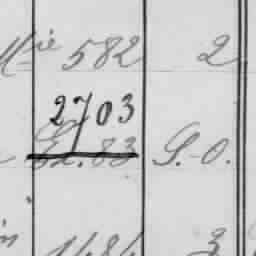 Mie 582 2
2703
S.-O.
1484 3